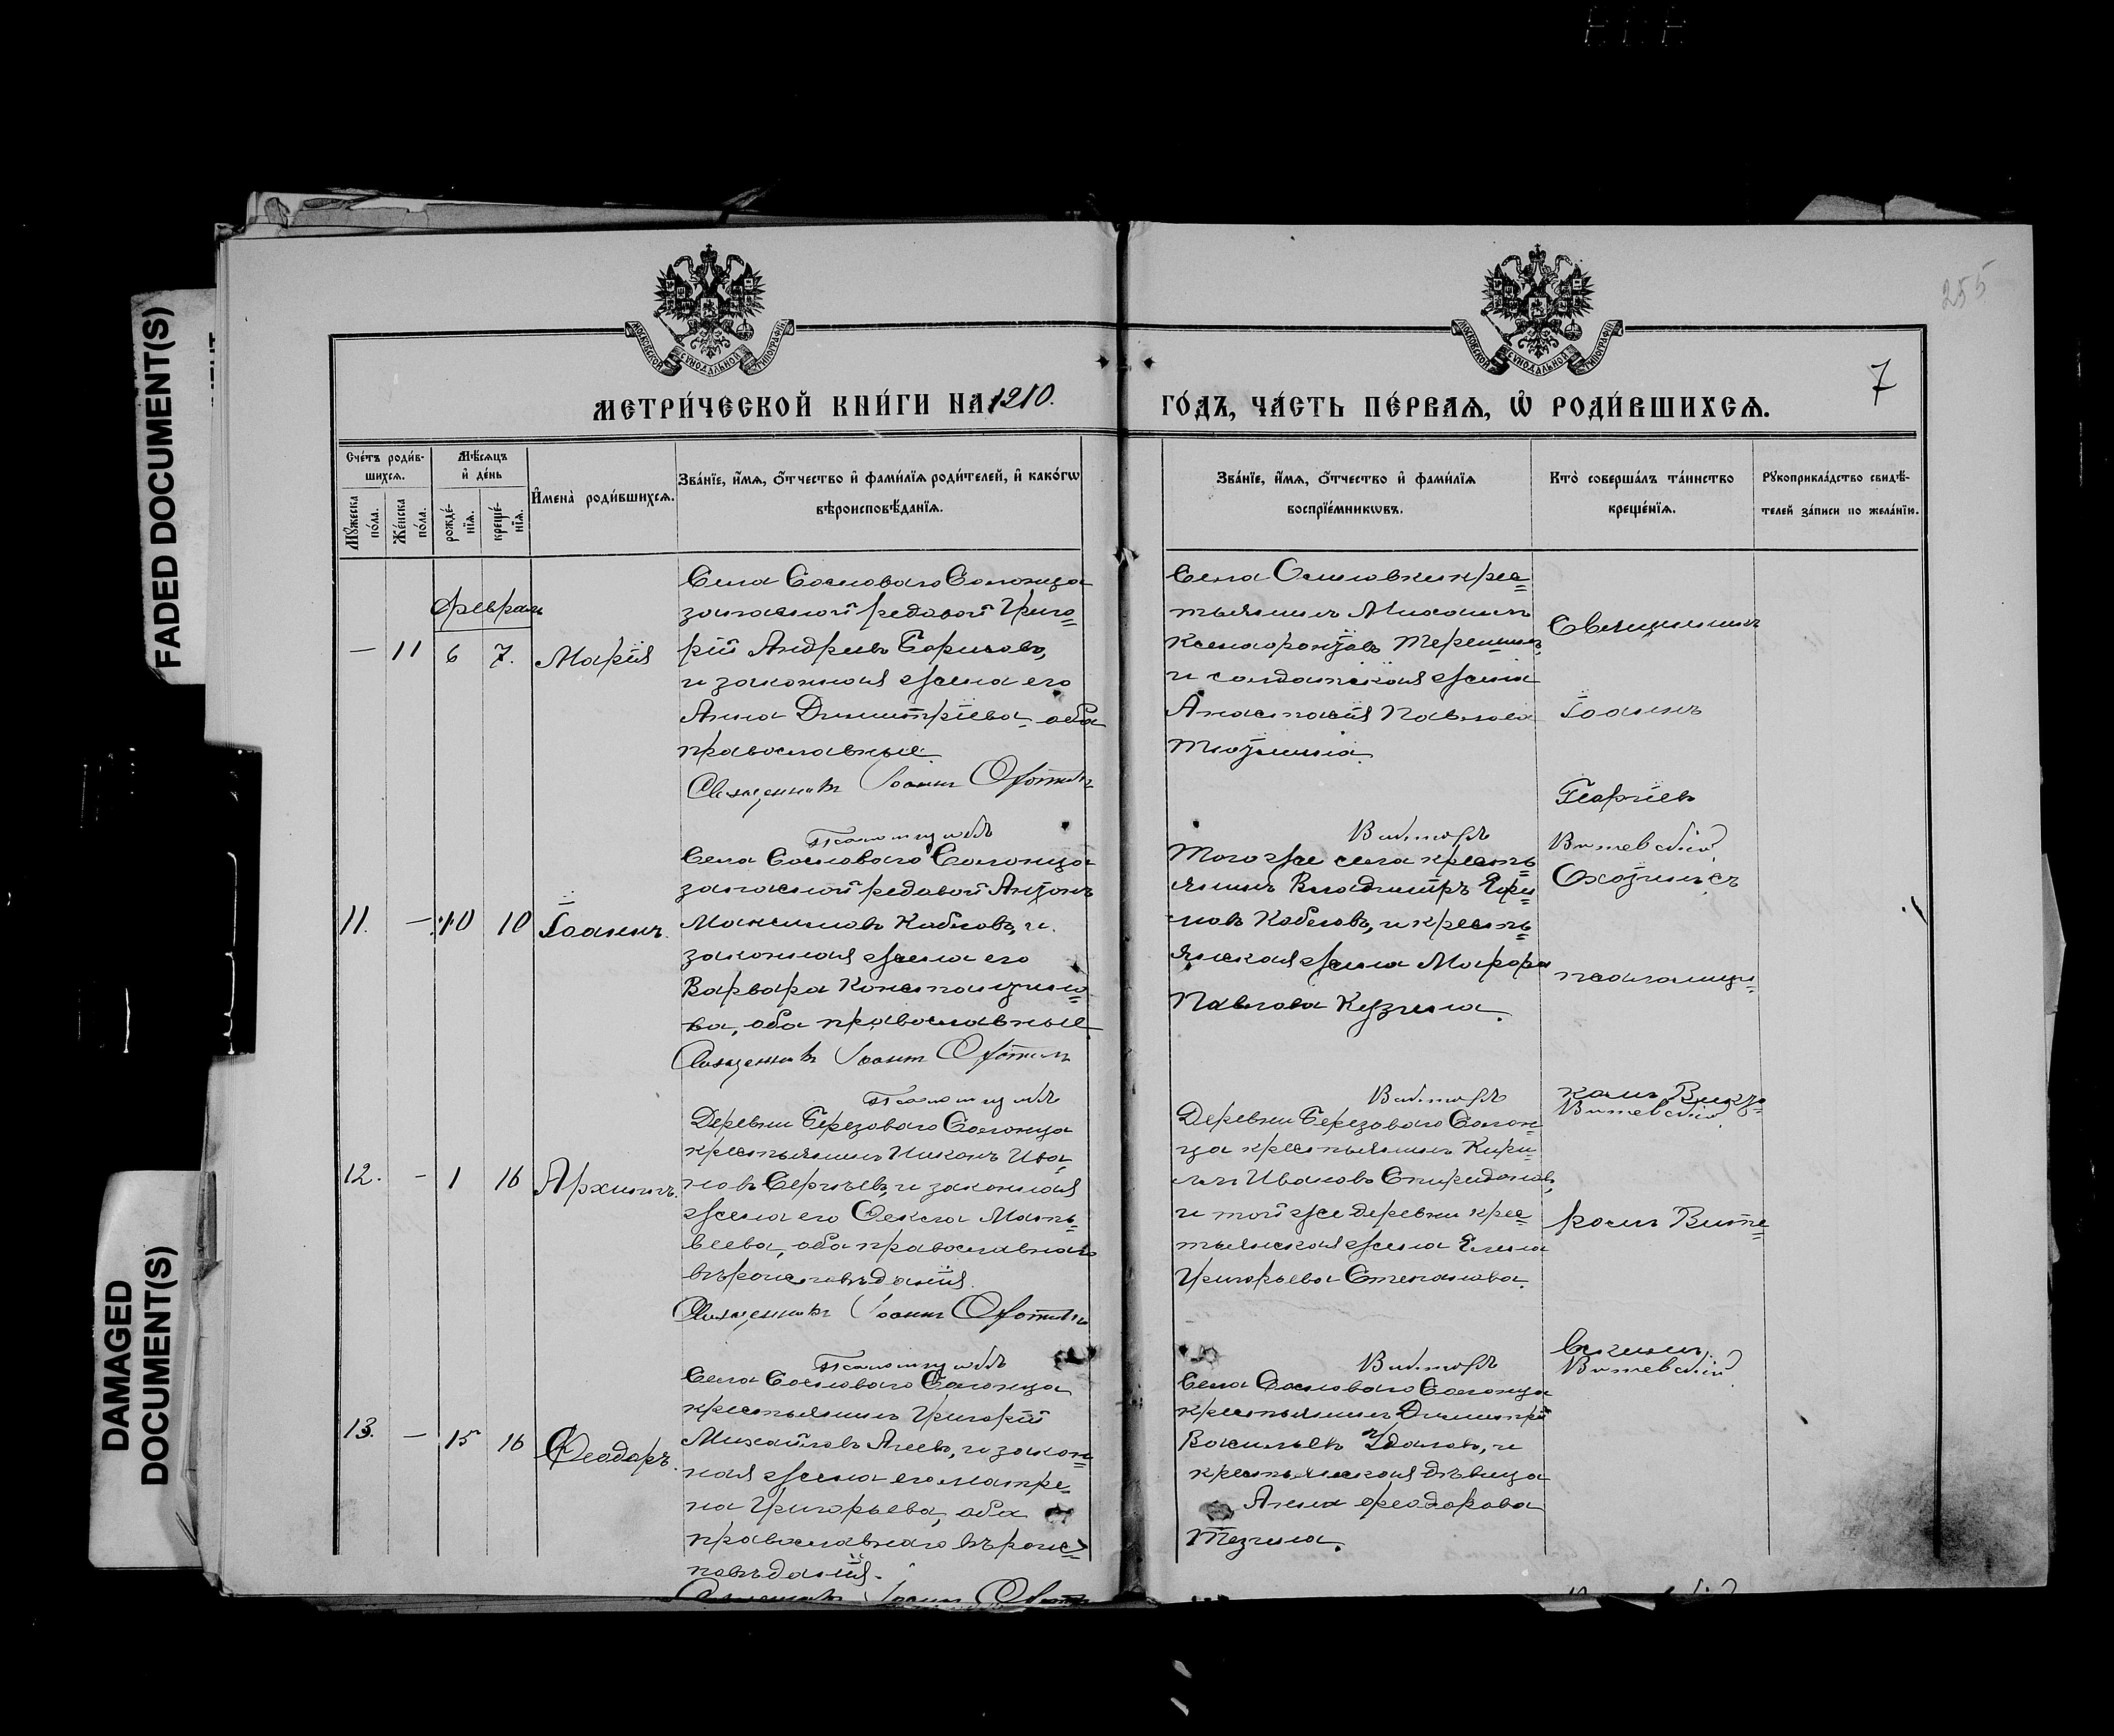 FADED DOCUMENT(S)
DAMAGED
DOCUMENT(S)
255
7
МОСКОВСКОЙ СѴНОДАЛЬНОЙ ТИПОГРАФІИ
МОСКОВСКОЙ СѴНОДАЛЬНОЙ ТИПОГРАФІИ
МЕТРИ́ЧЕСКОЙ КНИ́ГИ НА 1910.
ГО́ДЪ, ЧА́СТЬ ПЕ́РВАѦ, Ѽ РОДИ́ВШИХСѦ.
Сче́тъ роди́в-
шихсѧ.
Мꙋ́жеска по́ла.
Же́нска по́ла.
Мѣ́сѧцъ
и҆ де́нь
рожде́-
нїѧ.
креще́-
нїѧ.
И҆мена̀ роди́вшихсѧ.
Зва́нїе, и҆́мѧ, ѻ҆́тчество и҆ фами́лїѧ роди́телей, и҆ како́гѡ
вѣроисповѣ́данїѧ.
Зва́нїе, и҆́мѧ, ѻ҆́тчество и҆ фами́лїѧ
воспрїе́мникѡвъ.
Кто̀ соверша́лъ та́инство
креще́нїѧ.
Рꙋкоприкла́дство свидѣ́-
телей за́писи по жела́нїю.
Февраль
— 11 6 7. Марія
Села Сосноваго Солонца
запасной рядовой Григо=
рій Андреевъ Боричевъ,
и законная жена его
Анна Димитріева, оба
православные.
Священникъ Іоаннъ Охотинъ
Псаломщикъ
Села Осиновки крес=
тьянинъ Михаилъ
Ксенофонтовъ Терешинъ,
и солдатская жена
Анастасія Павлова
Виктор
Священникъ
Іоаннъ
Георгіевъ
Витевскій
Охотинъ съ
11. — 10 10 Іоаннъ.
Села Сосноваго Солонца
запасной рядовой Антонъ
Максимовъ Кобловъ, и
законная жена его
Варвара Константино=
ва, оба православные
Священникъ Іоаннъ Охотинъ
Псаломщикъ
Того же села кресть=
янинъ Владиміръ
Кобловъ, и кресть=
янская жена Марфа
Павлова Кузина.
Викторъ
псаломщи=
комъ Викто=
Витевскій
12. — 1 16 Архиппъ.
Деревни Березоваго Солонца
крестьянинъ Никонъ Ива=
новъ Сергѣевъ, и законная
жена его Ѳекла Мать=
веева, оба православнаго
вѣроисповѣданія.
Священникъ Іоаннъ Охотинъ
Псаломщикъ
Деревни Березоваго Солон=
ца крестьянинъ Кири=
лъ Ивановъ Спиридоновъ,
и той же деревни крес=
тьянская жена Елена
Григорьева Степанова.
Викторъ
ромъ Вите=
вскимъ.
Витевскій
13. — 15 16 Ѳеодоръ.
Села Сосноваго Солонца
крестьянинъ Григорій
Михайловъ Агеевъ, и закон=
ная жена его Матре=
на Григорьева, оба
православнаго вѣроис=
повѣданія.
Священникъ Іоаннъ Охотинъ
Села Сосноваго Солонца
крестьянинъ Димитрій
Васильевъ Удаловъ, и
крестьянская дѣвица
Анна Феодорова
Тезина.